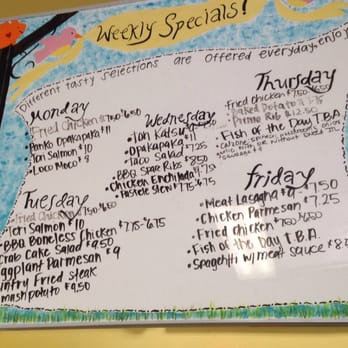 Weekly Specials!
Different tasty selections are offered everyday, enjoy
Monday
Fried Chicken $7.50/$6.50
• Panko Opakapaka $11
• Teri Salmon $10
• Loco Moco $8
Tuesday
• Fried Chicken $7.50/$6.50
• Teri Salmon $10
• BBQ Boneless Chicken $7.75-$6.75
Crab Cake Salad $9.50
Eggplant Parmesan $9
Country Fried Steak
mash potato $9.50
Wednesday
• Tori Katsu
• Opakapaka $11
• Taco Salad $7.25
• BBQ Spare Ribs $8.50
• Chicken Enchilada $9.75
• Pastele Stew $7.75-$6.75
Thursday
Fried Chicken $7.50
• Baked Potato
• Prime Rib $12.50
• Fish of the Day T.B.A.
• Calzone
Friday
• Meat Lasagna $7.50
• Chicken Parmesan $7.25
• Fried chicken $7.50/$6.50
• Fish of the Day T.B.A.
• Spaghetti w/meat sauce $8